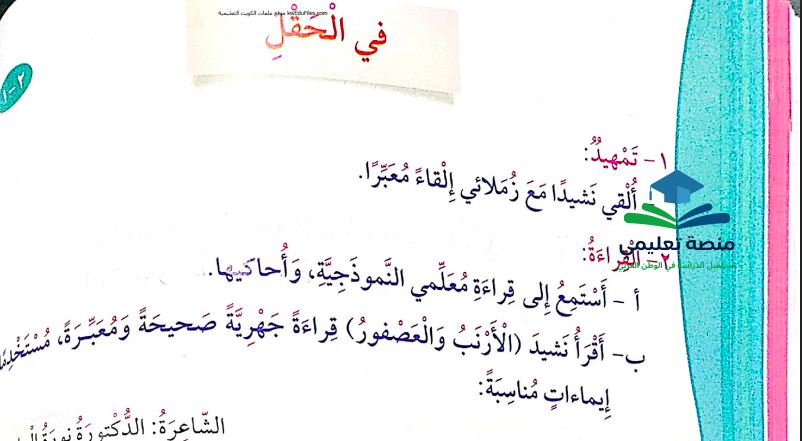 موقع ملفات الكويت التعليمية kwEduFiles.com
في الْحَقْلِ
١- تَمْهيدٌ:
- أُلْقي نَشيدًا مَعَ زُمَلائي إِلْقاءً مُعَبِّرًا.
منصة تعليمي
٢- الْقِراءَةُ:
أ - أَسْتَمِعُ إِلى قِراءَةِ مُعَلِّمي النَّموذَجِيَّةِ، وَأُحاكيها.
ب- أَقْرَأُ نَشيدَ (الْأَرْنَبُ وَالْعَصْفورُ) قِراءَةً جَهْرِيَّةً صَحيحَةً وَمُعَبِّرَةً، مُسْتَخْدِمًا
إيماءاتٍ مُناسِبَةً:
الشّاعِرَةُ: الدُّكْتورَةُ نورَةُ